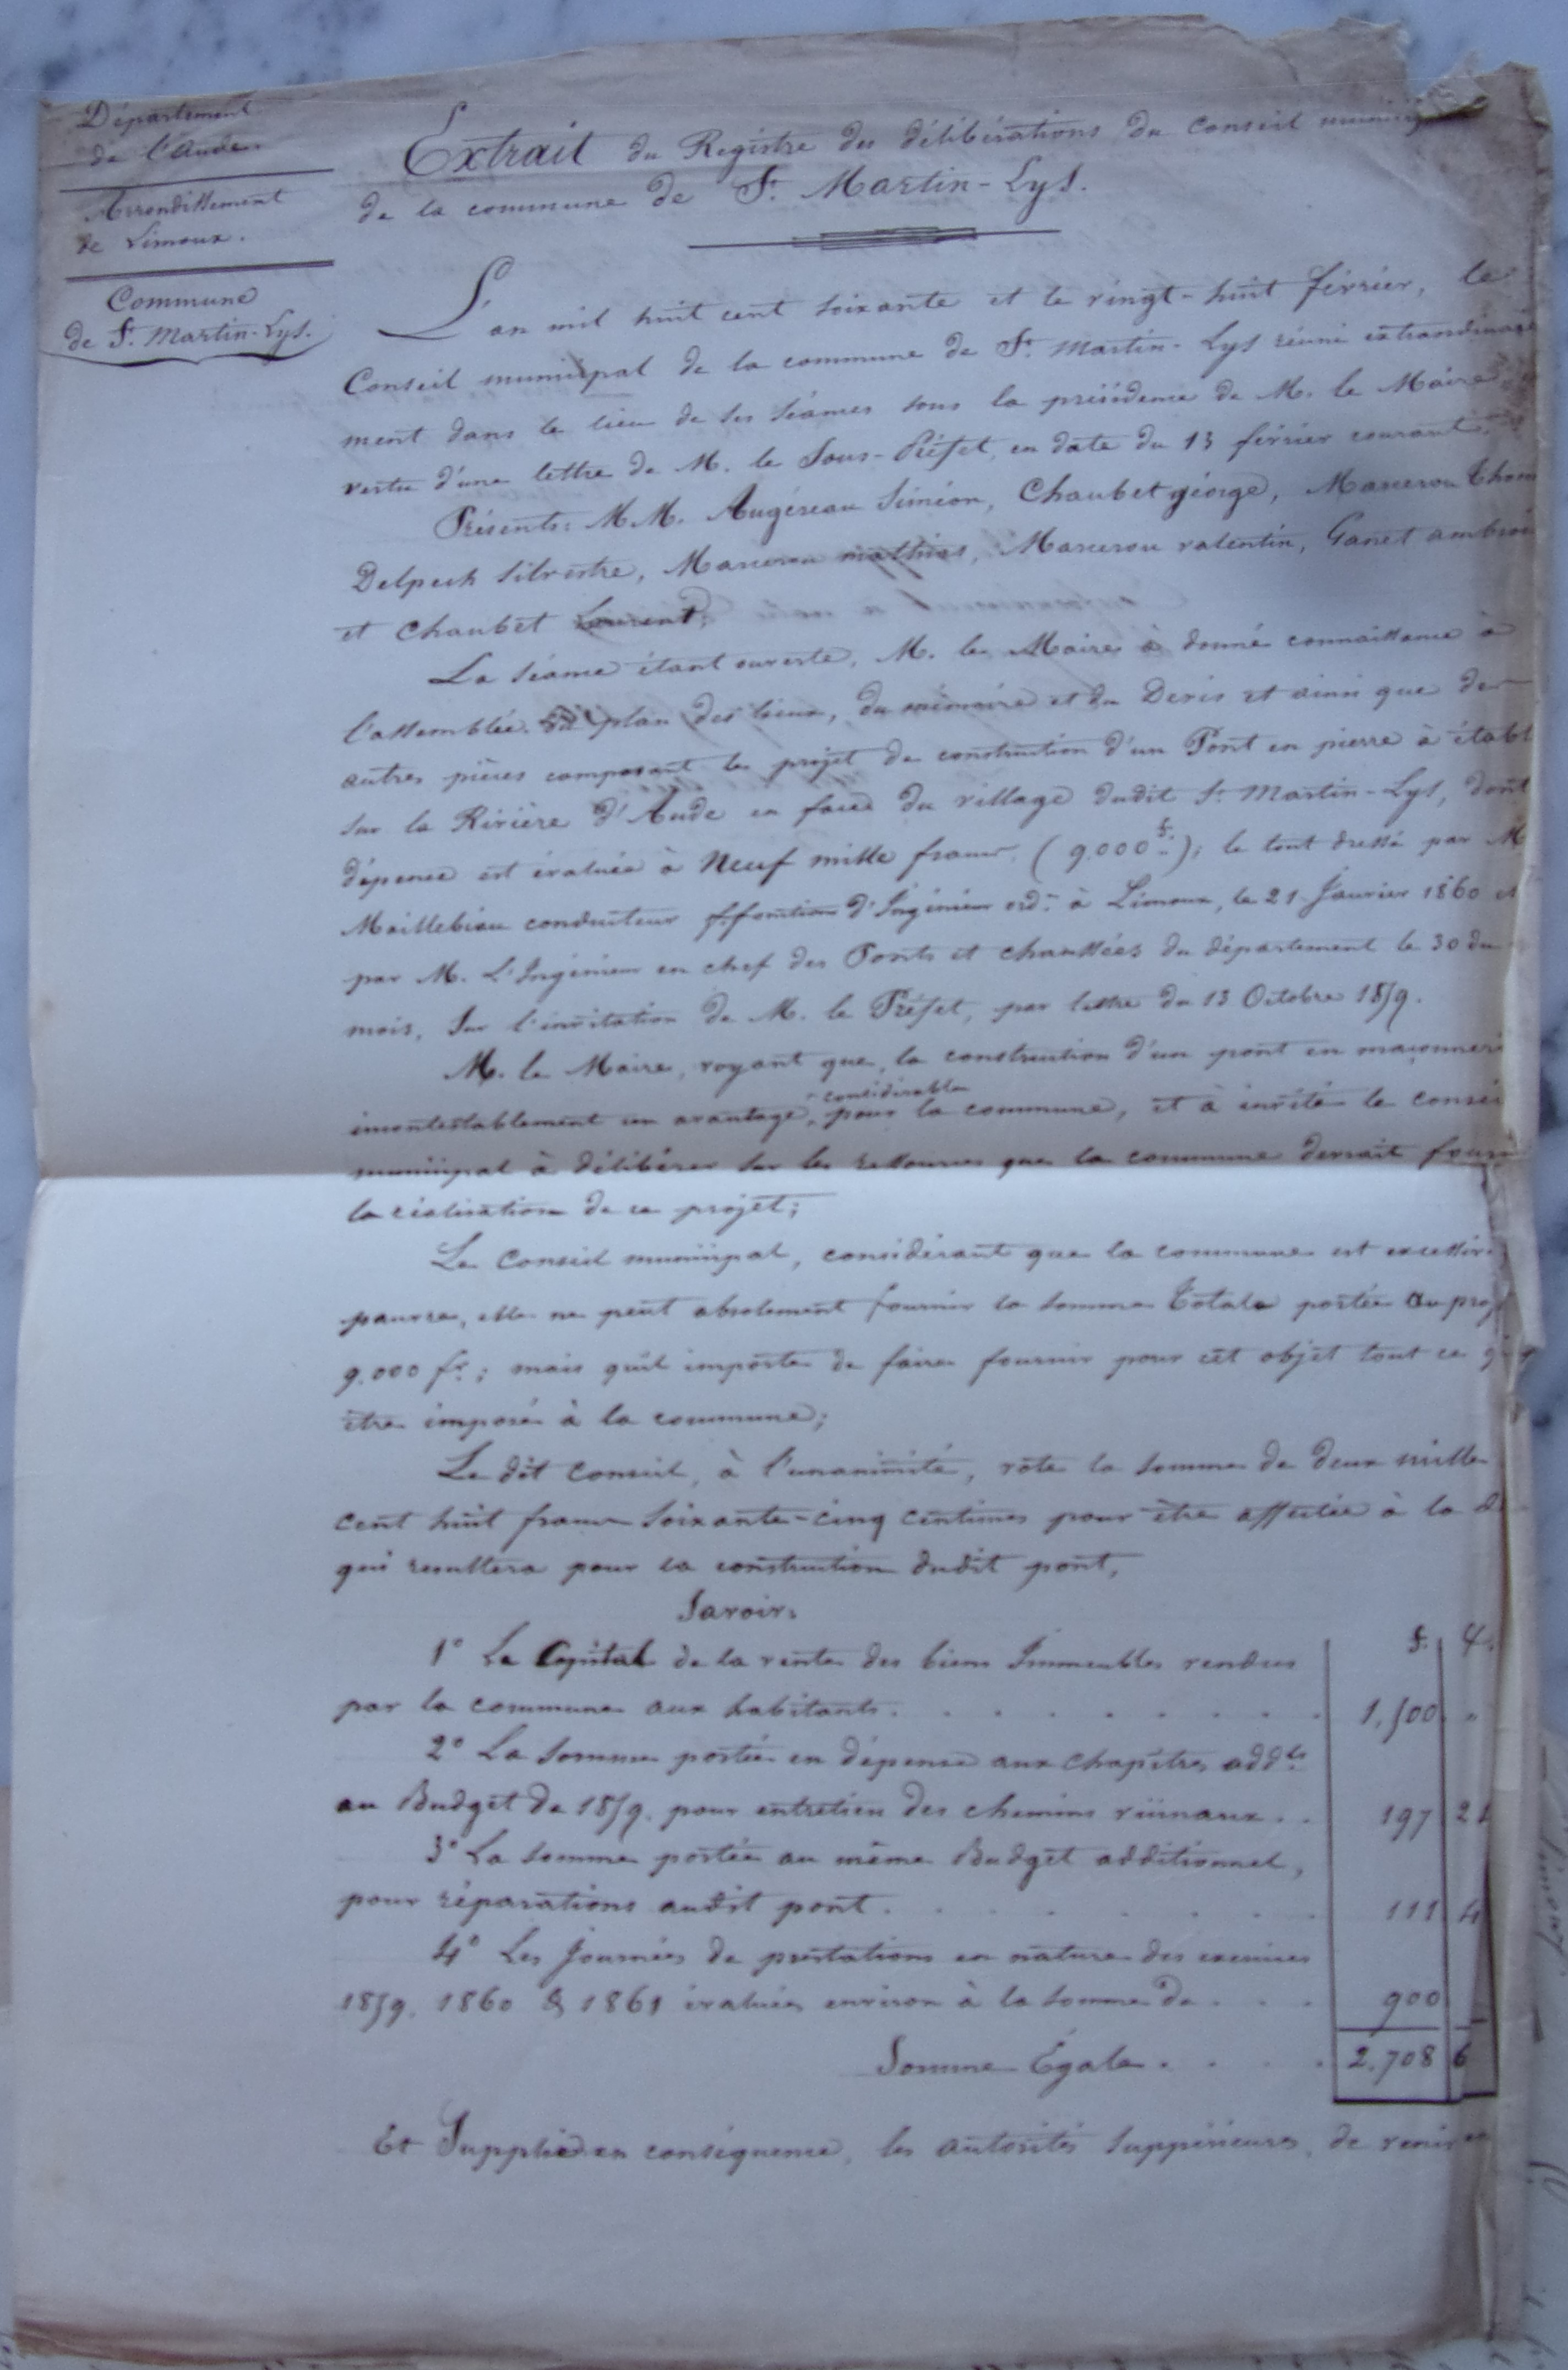 Département
de l'Aude.
Arrondissement
de Limoux.
Commune
de St. Martin-Lys.
Extrait du Registre des délibérations du Conseil munici
de la commune de St. Martin-Lys.
L'an mil huit cent soixante et le vingt-huit février, le
Conseil municipal de la commune de St. Martin-Lys réuni extraordinaire
ment dans le lieu de ses séances sous la présidence de M. le Maire
vertu d'une lettre de M. le Sous-Préfet, en date du 13 février courant.
Présents: M.M. Augéreau Siméon, Chaubet géorge, Marcerou Thom
Delpech Silvestre, Marcerou mathias, Marcerou valentin, Ganet ambroi
et Chaubet Laurent.
La séance étant ouverte, M. le Maire à donné connaissance à
l'assemblée du plan des lieux, du mémoire et du Devis et ainsi que de
autres pièces composant le projet de construction d'un Pont en pierre à établ
sur la Rivière d'Aude en face du village dudit St. Martin-Lys, dont
dépense est évaluée à Neuf mille francs, (9.000 f.); le tout dressé par M
Maillebiau conducteur f.fonctions d'Ingénieur ord.re à Limoux, le 21 Janvier 1860 et
par M. L'Ingénieur en chef des Ponts et chaussées du département le 30 du
mois, Sur l'invitation de M. le Préfet, par lettre du 13 Octobre 1859.
M. le Maire, voyant que, la construction d'un pont en maçonneri
considérable
incontestablement un avantage, pour la commune, et à invité le consei
municipal à délibérer sur les ressources que la commune devrait fourn
la réalisation de ce projet;
Le Conseil municipal, considérant que la commune est excessiv
pauvre, elle ne peut absolement fournir la somme Totale portée au proj
9.000 fr.; mais qu'il importe de faire fournir pour cet objet tout ce q
être imposé à la commune;
Le dit Conseil, à l'unanimité, vote la somme de deux mille
cent huit francs Soixante-cinq centimes pour être affectée à la d
qui resultera pour la construction dudit pont,
Savoir:
f. c.
1° Le Capital de la vente des biens Immeubles vendus
par la commune aux habitants. . . . . . . . . . 1,500 "
2° La Somme portée en dépense aux chapitres add.ls
au Budget de 1859. pour entretien des chemins vicinaux . . 197 21
3° La somme portée au même Budget additionnel,
pour réparations audit pont . . . . . . . . 111 4
4° Les Journées de prestations en nature des exercices
1859. 1860 & 1861 évaluées environ à la somme de . . . 900
Somme Égale . . . . 2.708 6
Et Supplie en conséquence, les autorités suppérieures, de venir en